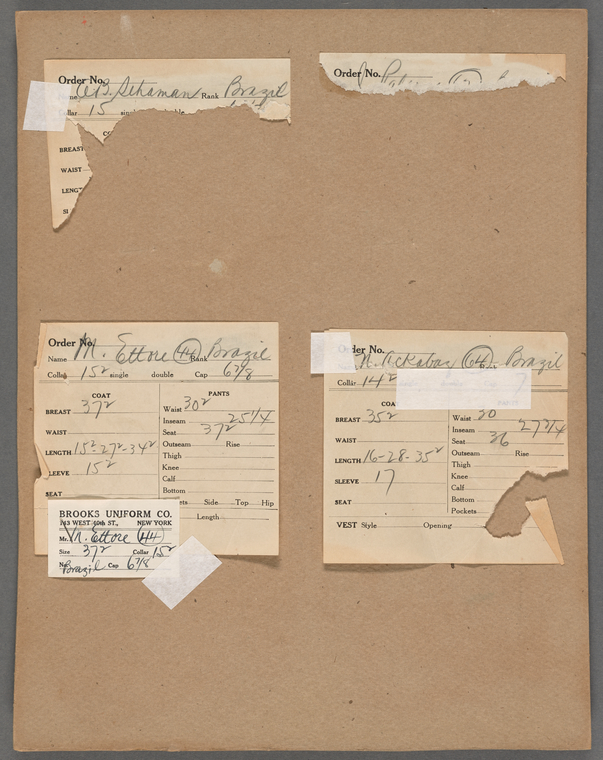 Order No.
me A.B. Sthaman Rank Brazil
llar 15 single double
BREAST
WAIST
LENGT
SL
Order No.
Order No.
Name M. Ettore (44) Rank Brazil
Collar 15² single double Cap 6 7/8
COAT
BREAST 37²
WAIST
LENGTH 15²-27²-34²
LEEVE 15²
SEAT
PANTS
Waist 30²
Inseam 25 1/4
Seat 37²
Outseam Rise
Thigh
Knee
Calf
Bottom
ets Side Top Hip
Length
BROOKS UNIFORM CO.
143 WEST 40th ST., NEW YORK
Mr. M. Ettore (44)
Size 37² Collar 15²
No. Brazil Cap 6 7/8
der No.
N. Ackabar (64) Brazil
Collar 14²
COA
BREAST 35²
WAIST
LENGTH 16-28-35²
SLEEVE 17
SEAT
Waist 30
Inseam 27 3/4
Seat 36
Outseam Rise
Thigh
Knee
Calf
Bottom
Pockets
VEST Style Opening